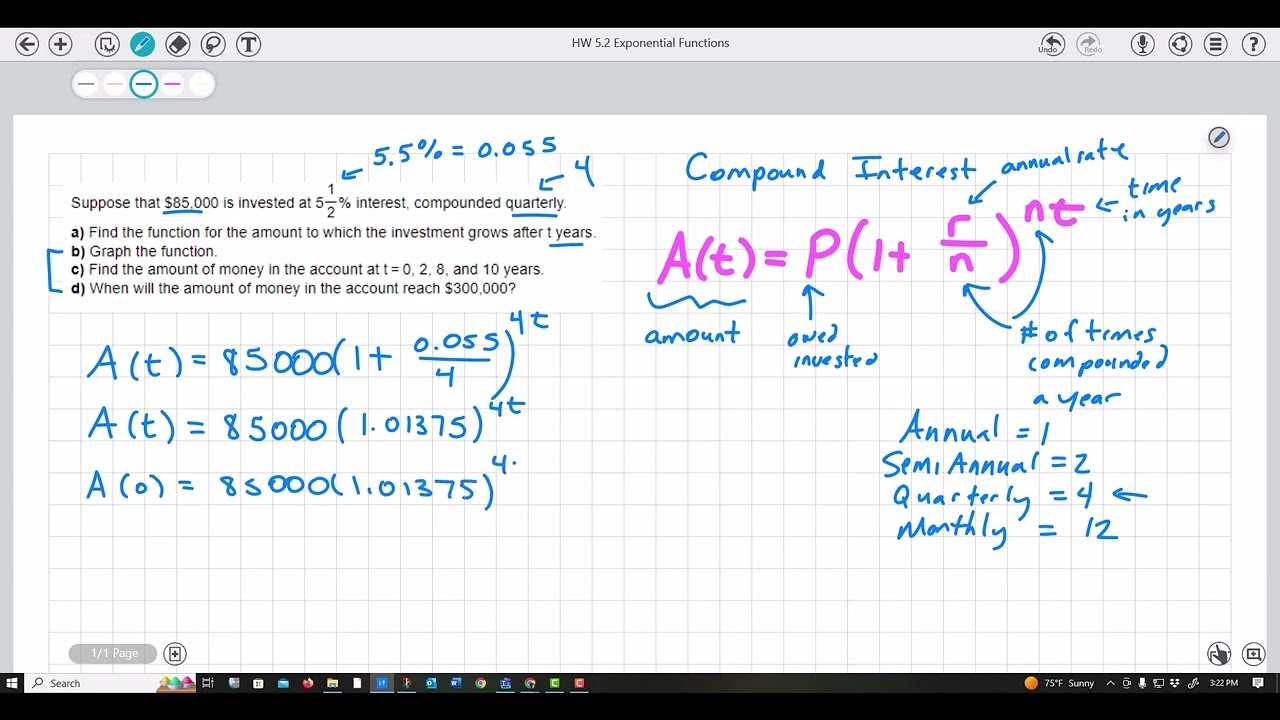 HW 5.2 Exponential Functions
Undo
Redo
5.5% = 0.055
4
Suppose that $85,000 is invested at 5 1/2 % interest, compounded quarterly.
a) Find the function for the amount to which the investment grows after t years.
b) Graph the function.
c) Find the amount of money in the account at t = 0, 2, 8, and 10 years.
d) When will the amount of money in the account reach $300,000?
A(t) = 85000(1 + 0.055/4)^4t
A(t) = 85000(1.01375)^4t
A(0) = 85000(1.01375)^4·
Compound Interest
annual rate
time
in years
A(t) = P(1 + r/n)^nt
amount
owed
invested
# of times
compounded
a year
Annual = 1
Semi Annual = 2
Quarterly = 4
Monthly = 12
1/1 Page
Search
75°F Sunny
3:22 PM